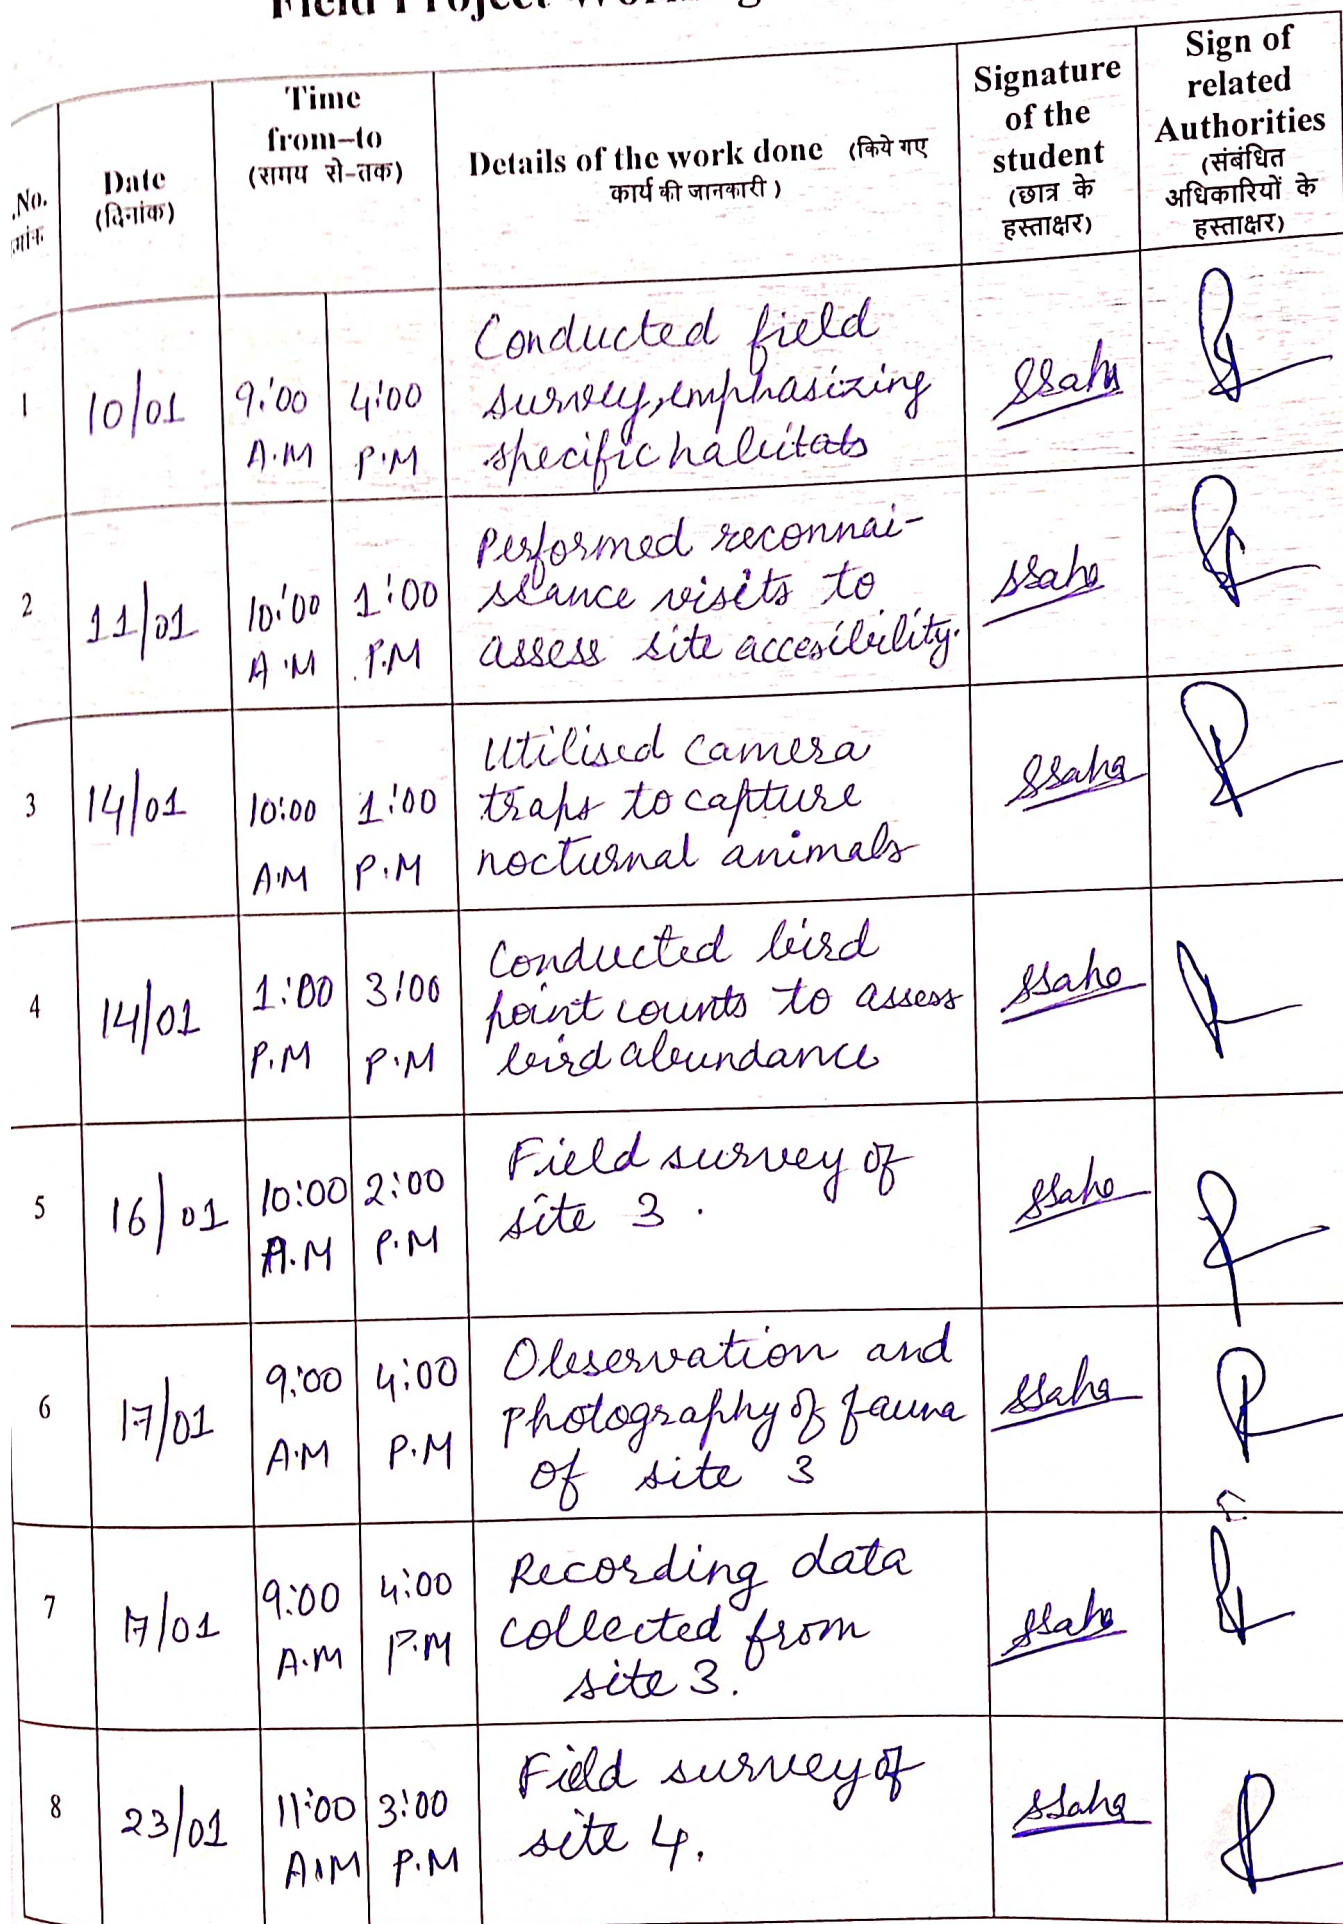 Field Project Work
.No.
Date
(दिनांक)
Time
from–to
(समय से-तक)
Details of the work done (किये गए
कार्य की जानकारी )
Signature
of the
student
(छात्र के
हस्ताक्षर)
Sign of
related
Authorities
(संबंधित
अधिकारियों के
हस्ताक्षर)
1 10/01 9:00 A.M 4:00 P.M
Conducted field
survey, emphasizing
specific habitats
SSaha
2 11/01 10:00 A.M 1:00 P.M
Performed reconnai-
ssance visits to
assess site accesibility.
SSaha
3 14/01 10:00 A.M 1:00 P.M
Utilised camera
traps to capture
nocturnal animals
SSaha
4 14/01 1:00 P.M 3:00 P.M
Conducted bird
point counts to assess
bird abundance
SSaha
5 16/01 10:00 A.M 2:00 P.M
Field survey of
site 3.
SSaha
6 17/01 9:00 A.M 4:00 P.M
Observation and
Photography of fauna
of site 3
SSaha
7 17/01 9:00 A.M 4:00 P.M
Recording data
collected from
site 3.
SSaha
8 23/01 11:00 A.M 3:00 P.M
Field survey of
site 4.
SSaha